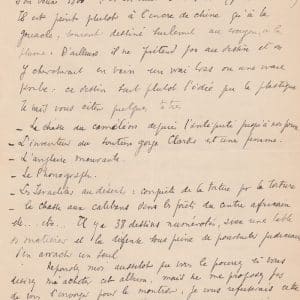 Il est peint plutôt à l'encre de chine qu'à la
gouache, souvent dessiné seulement au crayon, à la
plume. D'ailleurs il ne prétend pas au dessin et on
y chercherait en vain un vrai bras ou une vraie
ce dessin sont plutôt l'idée que la plastique
Je vais vous citer quelques titres
- La chasse du caméléon depuis l'antiquité jusqu'à nos jours
- L'inventeur du soutien gorge et une femme.
- L'anglaise mourante.
- Le Phonographe.
- Les Israelites au désert : conquête de la par la torture
- La chasse aux calibans dans les forêts du centre africain
etc.. etc... Il y a 38 dessins numérotés, avec une table
des matières et la défense sous peine de poursuites judiciaires
d'en arracher un seul.
Réponds moi aussitôt que tu le pourras si vous
désirez m'acheter cet album, mais ne me proposez pas
de vous l'envoyer pour le montrer, je vous refuserais cette